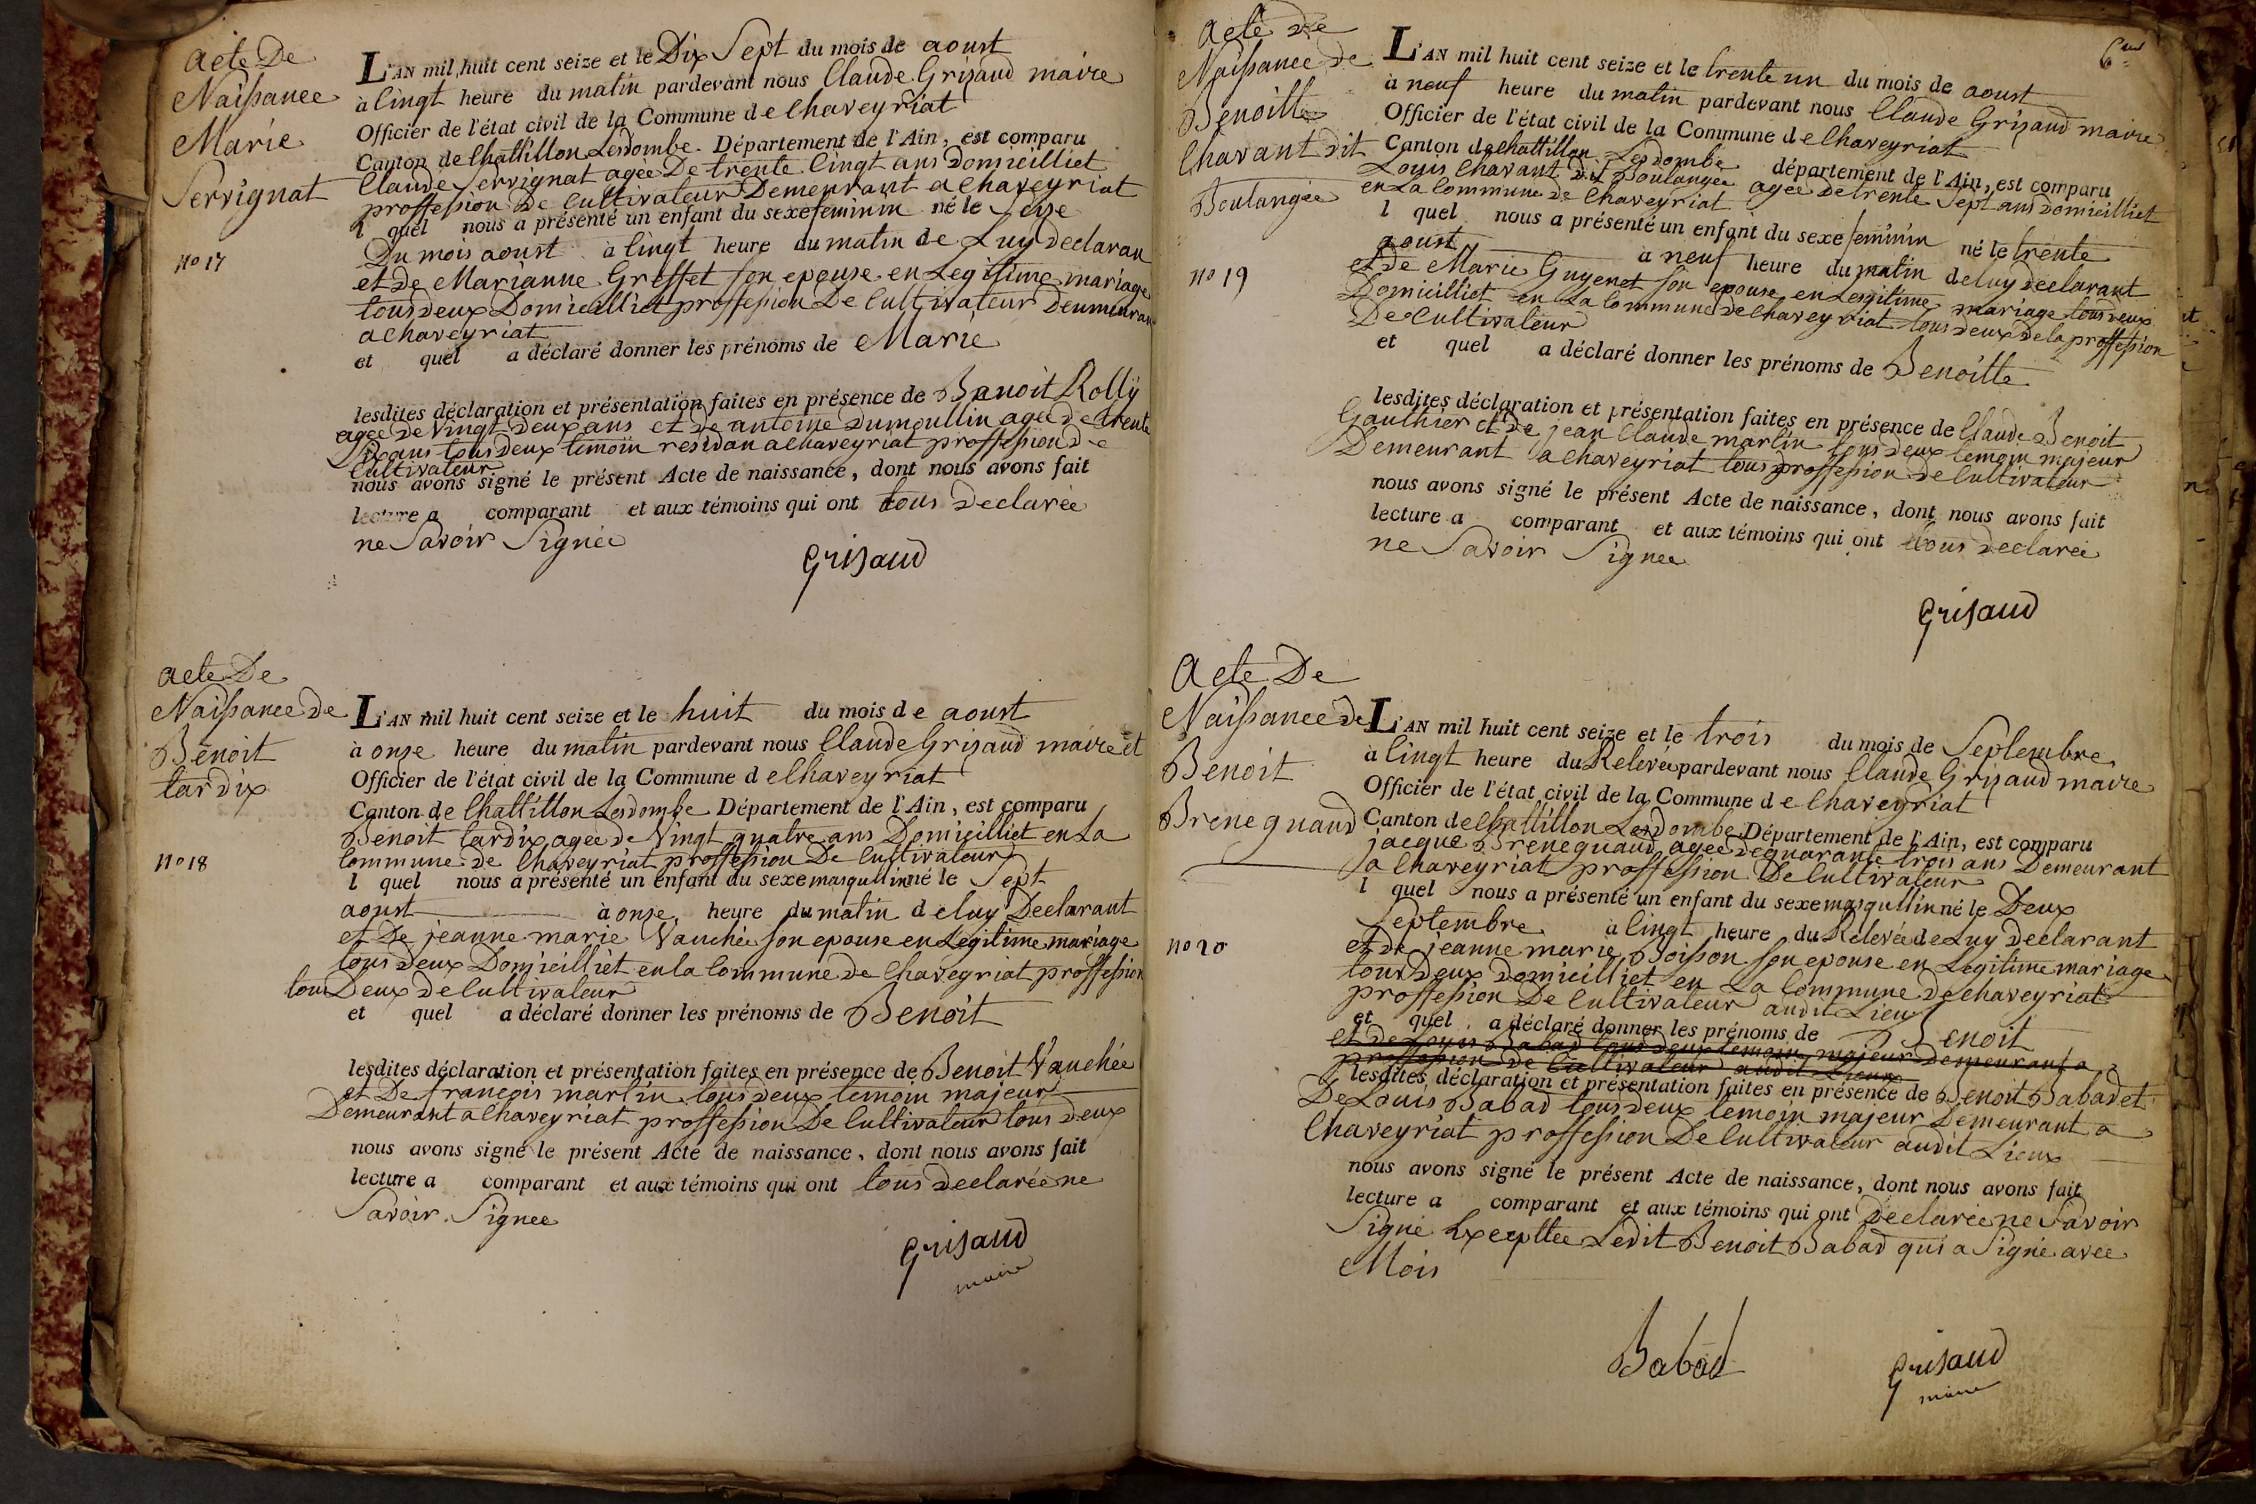 acte De
Naissance
Marie
Servignat
No 17
L'AN mil huit cent seize et le Dix Sept du mois de aoust
à Cingt heure du matin pardevant nous Claude Grisaud maire
Officier de l'état civil de la Commune de Chaveyriat
Canton de Chattillon Lesdombe Département de l'Ain, est comparu
Claude Servignat agée De trente Cingt ans Domicilliet
proffession De Cultivateur Demeurant a Chaveyriat
l quel nous a présenté un enfant du sexe feminin né le Seize
Du mois aoust à Cingt heure du matin de Luy declaran
et de Marianne Greffet son epouse en Legitime mariage
tous deux Domicilliet proffession De Cultivateur Deumeuran
a Chaveyriat
et quel a déclaré donner les prénoms de Marie
lesdites déclaration et présentation faites en présence de Benoit Rolly
agée De Vingt Deux ans et De antoine Dumoullin agée De trente
Six ans tous Deux temoin residan a Chaveyriat proffession De
Cultivateur
nous avons signé le présent Acte de naissance, dont nous avons fait
lecture a comparant et aux témoins qui ont tous Declarée
ne Savoir Signée
Grisaud
acte De
Naissance de
Benoit
tardix
No 18
L'AN mil huit cent seize et le huit du mois de aoust
à onse heure du matin pardevant nous Claude Grisaud maire et
Officier de l'état civil de la Commune d e Chaveyriat
Canton de Chattillon Lesdombe Département de l'Ain, est comparu
Benoit tardix agée de Vingt quatre ans Domicilliet en La
Commune de Chaveyriat proffession De Cultivateur
l quel nous a présenté un enfant du sexe masqullin né le Sept
aoust à onse heure du matin d e luy Declarant
et De jeanne marie Vauchée son epouse en Legitime mariage
tous deux Domicilliet en la Commune de Chaveyriat proffession
tous Deux de Cultivateur
et quel a déclaré donner les prénoms de Benoit
lesdites déclaration et présentation faites en présence de Benoit Vauchée
et De francois martin tous deux temoin majeur
Demeurant a Chaveyriat proffession De Cultivateur tous deux
nous avons signé le présent Acte de naissance, dont nous avons fait
lecture a comparant et aux témoins qui ont tous declarée ne
Savoir Signee
Grisaud
maire
6me
acte De
Naissance de
Benoitte
Chavant dit
Boulangée
No 19
L'AN mil huit cent seize et le trente un du mois de aoust
à neuf heure du matin pardevant nous Claude Grisaud maire
Officier de l'état civil de la Commune d e Chaveyriat
Canton de Chattillon Lesdombe département de l'Ain, est comparu
Louis Chavant dit Boulangée agée De trente Sept ans domicilliet
en La Commune de Chaveyriat
l quel nous a présenté un enfant du sexe feminin né le trente
aoust à neuf heure du matin de luy declarant
et de Marie Guyenet son epouse en Legitime mariage tous deux
Domicilliet en La Commune de Chaveyriat tous deux de la proffession
De Cultivateur
et quel a déclaré donner les prénoms de Benoitte
lesdites déclaration et présentation faites en présence de Claude Benoit
Gauthier et de jean Claude martin tous deux temoin majeur
Demeurant a Chaveyriat tous proffession de Cultivateur
nous avons signé le présent Acte de naissance, dont nous avons fait
lecture a comparant et aux témoins qui ont tous Declarée
ne Savoir Signee
Grisaud
Acte De
Naissance de
Benoit
Brenequaud
No 20
L'AN mil huit cent seize et le trois du mois de Septembre
à Cingt heure du Relevée pardevant nous Claude Grisaud maire
Officier de l'état civil de la Commune d e Chaveyriat
Canton de Chattillon Lesdombe Département de l'Ain, est comparu
jacque Brenequaud agée de quarante trois ans Demeurant
a Chaveyriat proffession De Cultivateur
l quel nous a présenté un enfant du sexe masqullin né le Deux
Septembre à Cingt heure du Relevée de Luy declarant
et de jeanne marie Boisson son epouse en Legitime mariage
tous Deux domicilliet en La Commune de Chaveyriat
proffession De Cultivateur audit Lieu
et quel a déclaré donner les prénoms de Benoit
et de Louis Babad tous deux temoin majeur demeurant a
proffession De Cultivateur audit Lieux
lesdites déclaration et présentation faites en présence de Benoit Babad et
De Louis Babad tous deux temoin majeur Demeurant a
Chaveyriat proffession De Cultivateur audit Lieux
nous avons signé le présent Acte de naissance, dont nous avons fait
lecture a comparant et aux témoins qui ont Declarée ne Savoir
Signé Excepttee Ledit Benoit Babad qui a Signé avec
Mois
Babad
Grisaud
maire